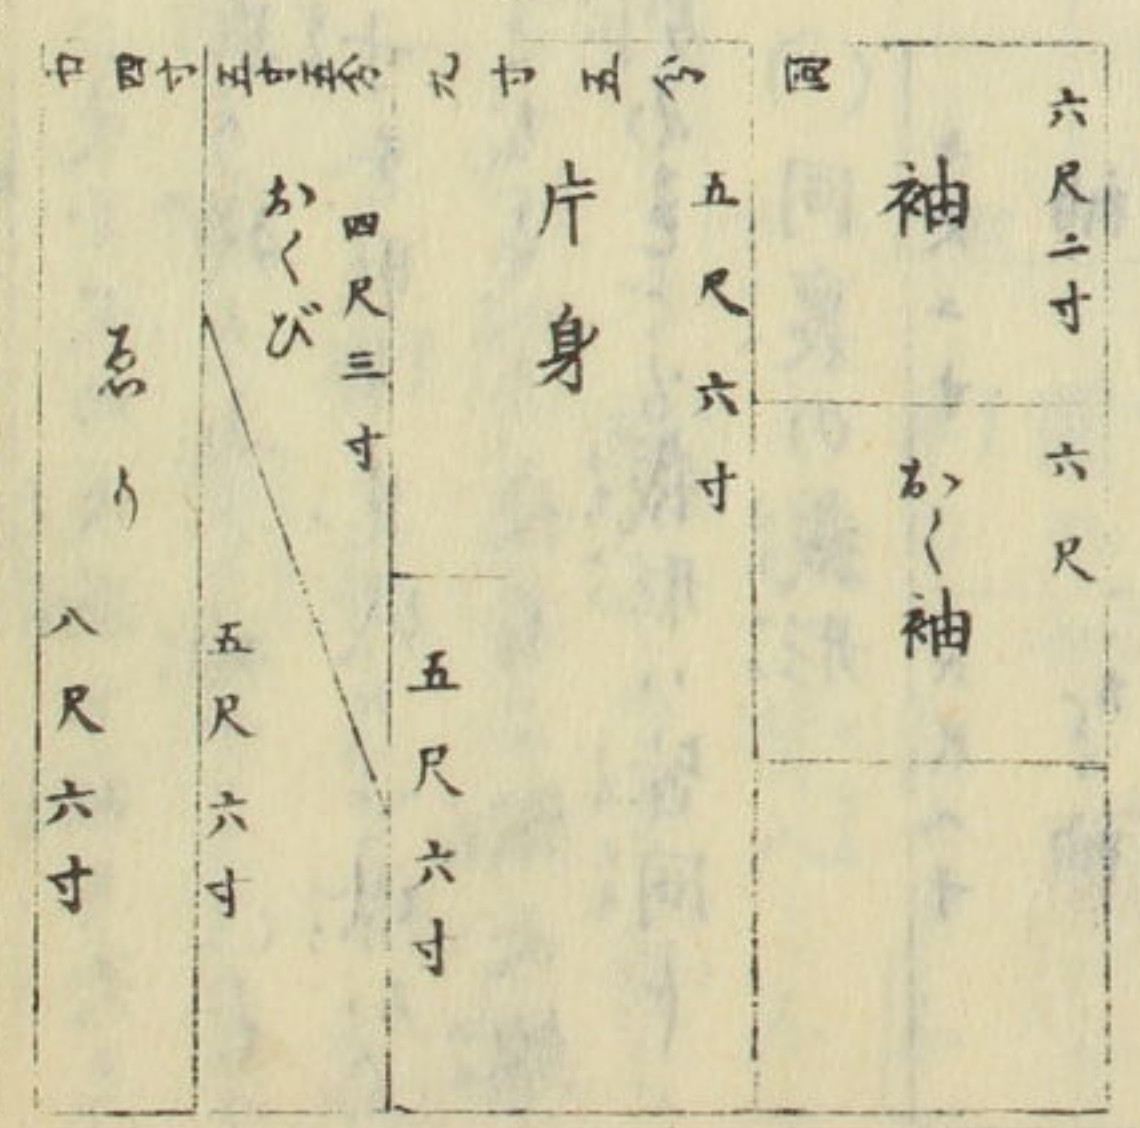 六尺二寸
袖
同
六尺
おく袖
九寸五分
五尺六寸
片身
五尺六寸
五寸五分
四尺三寸
おくび
五尺六寸
巾四寸
ゑり
八尺六寸